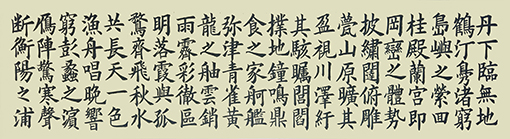 丹下臨無地
鶴汀鳧渚窮
島嶼之縈回
桂殿蘭宮即
岡巒之體勢
披繡闥俯雕
甍山原曠其
盈視川澤紆
其駭矚閭閻
撲地鐘鳴鼎
食之家舸艦
弥津青雀黃
龍之舳雲銷
雨霽彩徹區
明落霞與孤
鶩齊飛秋水
共長天一色
漁舟唱晚響
窮彭蠡之濱
鴈陣驚寒聲
断衡陽之浦